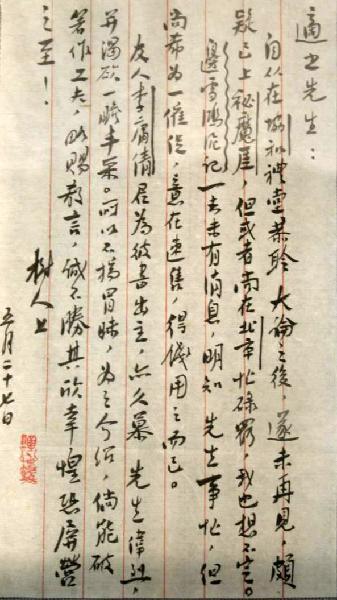 適之先生：
自从在協和禮堂恭聆大倫之後，遂未再見，頗
疑已上祕魔崖，但或者尚在北京忙碌罷，我也想不定。
邊雪鴻泥記一去未有消息，明知 先生事忙，但
尚希为一催促，意在速售，得錢用之而已。
友人李庸倩君為彼書出主，亦久慕 先生偉烈，
并渴欲一瞻丰采。所以不揣冒昧，为之介紹，倘能破
著作工夫，略賜教言，誠不勝其欣幸惶恐屏營
之至！
樹人上
五月二十七日